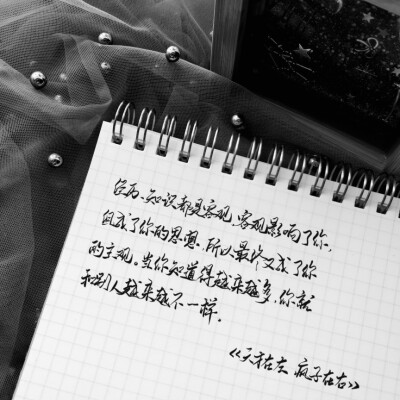 经历、知识都是客观，客观影响了你，
组成了你的思想，所以最终又成了你
的主观。当你知道得越来越多，你就
和别人越来越不一样。
《天才在左 疯子在右》